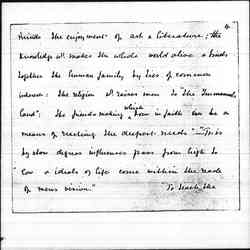 minds the enjoyment of art & literature; the
knowledge wh. makes the whole world alive & binds
together the human family by ties of common
interest: the religion wh. raises men to the Immanuel
land": the friends making which born in faith can be a
means of reaching the deepest needs" "This
by slow degrees influences pass from high to
low & ideals of life come within the reach
of mens vision."
To teach the